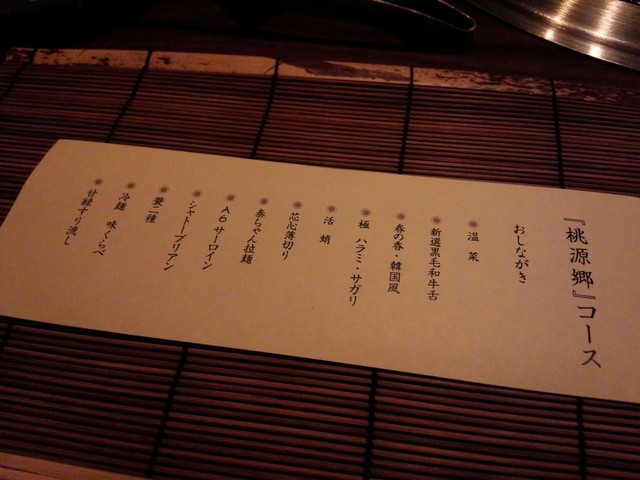 『桃源郷』コース
おしながき
温菜
新選黒毛和牛舌
春の香・韓国風
極 ハラミ・サガリ
活 蛸
芯心薄切り
泰ちゃん拉麺
A6 サーロイン
シャトーブリアン
贅二種
冷麺 味くらべ
甘緑すり流し